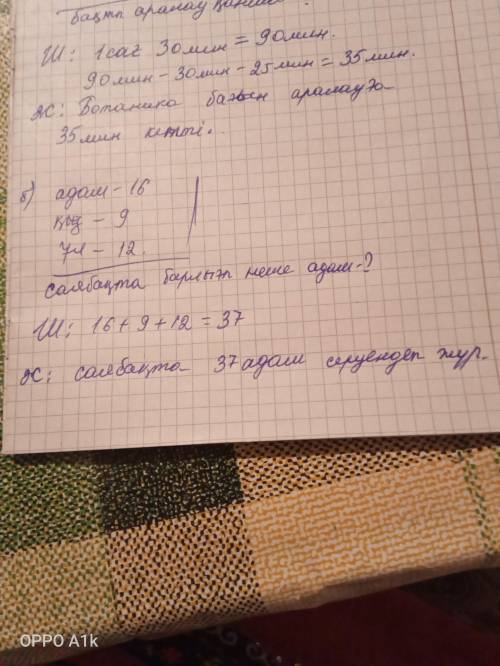 бақты аралау
Ш: 1 саг 30 мин = 90 мин.
90 мин - 30 мин - 25 мин = 35 мин.
Ж: Ботаника бағын аралауға
35 мин кетті.
б) адам - 16
қыз - 9
ұл - 12.
саябақта барлығы неше адам - ?
Ш: 16 + 9 + 12 = 37
Ж: саябақта 37 адам серуендеп жүр.
OPPO A1k